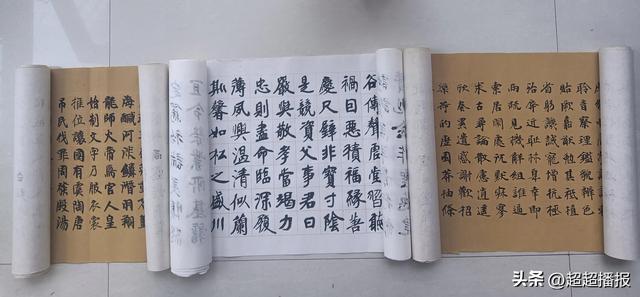 海鹹河淡鱗潛羽翔
龍師火帝鳥官人皇
始制文字乃服衣裳
推位讓國有虞陶唐
吊民伐罪周發殷湯
谷傳聲虛堂習聽
禍因惡積福緣善
慶尺璧非寶寸陰
是競資父事君曰
嚴與敬孝當竭力
忠則盡命臨深履
薄夙興溫清似蘭
斯馨如松之盛川
宜令榮業所基籍
聆音察理鑑貌辨色
貽厥嘉猷勉其祗植
省躬譏誡寵增抗極
殆辱近恥林皋幸即
兩疏見機解組誰逼
索居閒處沉默寂寥
求古尋論散慮逍遙
欣奏累遣慼謝歡招
渠荷的歷園莽抽條
头条 @超超播报